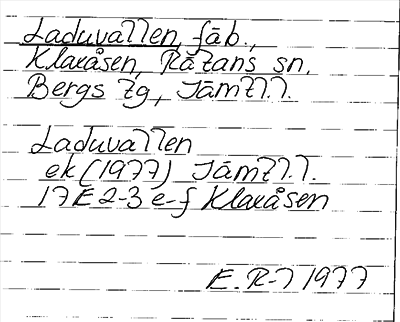 Laduvallen, fäb.,
Klaxåsen, Rätans sn.
Bergs tg, Jämtl.l.
Laduvallen
ek (1977) Jämtl.l.
17E 2-3 e-f Klaxåsen
E. R-l 1977